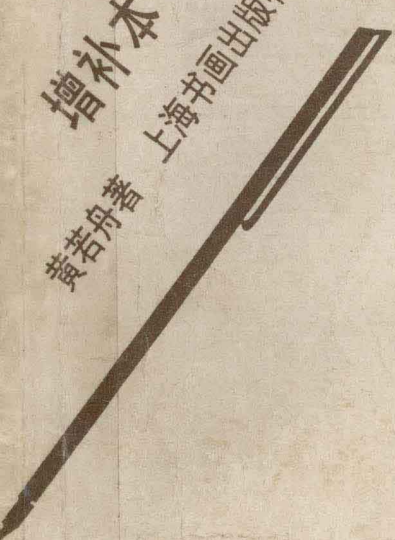 增补本
黄若舟著
上海书画出版